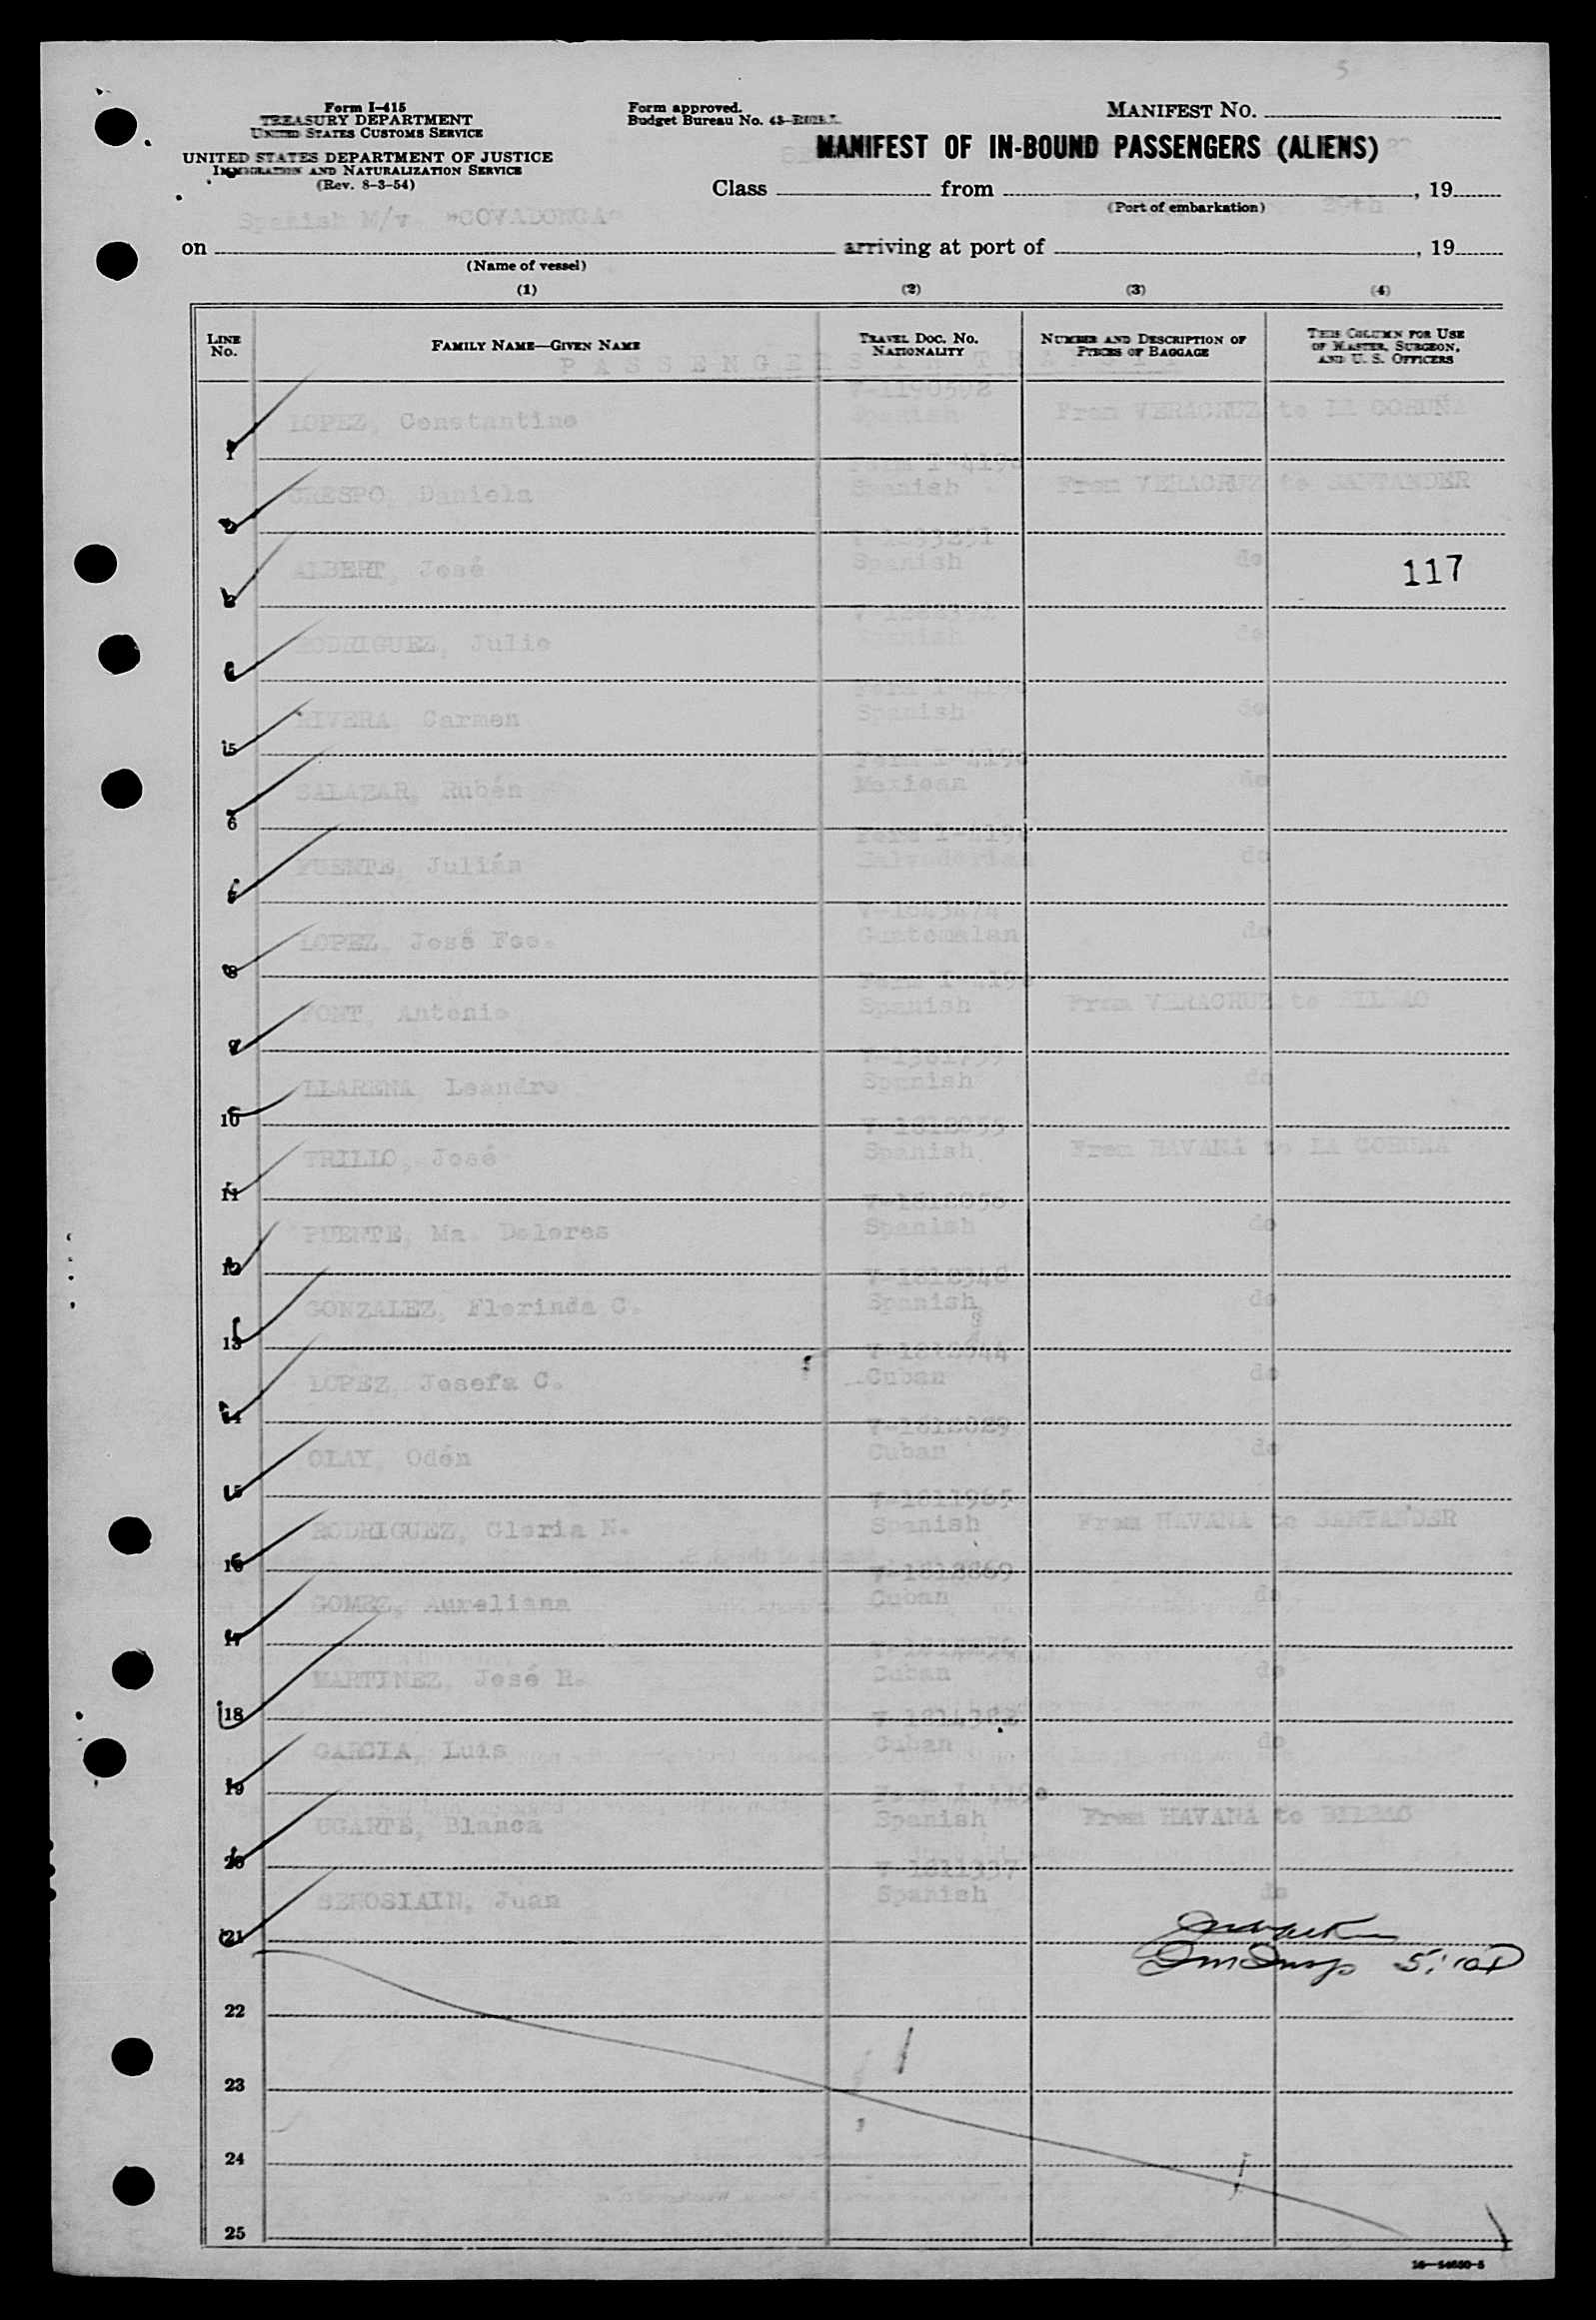 5
Form I-415
TREASURY DEPARTMENT
UNITED STATES CUSTOMS SERVICE
UNITED STATES DEPARTMENT OF JUSTICE
IMMIGRATION AND NATURALIZATION SERVICE
(Rev. 8-3-54)
Form approved.
Budget Bureau No.
MANIFEST NO.
MANIFEST OF IN-BOUND PASSENGERS (ALIENS)
Class from , 19
(Port of embarkation) 29th
Spanish M/v. "COVADONGA"
on arriving at port of , 19
(Name of vessel)
(1) (2) (3) (4)
LINE No. FAMILY NAME—GIVEN NAME TRAVEL DOC. NO. NATIONALITY NUMBER AND DESCRIPTION OF PIECES OF BAGGAGE THIS COLUMN FOR USE OF MASTER, SURGEON, AND U. S. OFFICERS
PASSENGERS IN TRANSIT
V-1190592
1 LOPEZ, Constantino Spanish From VERACRUZ to LA CORUÑA
Form I-419
2 CRESPO, Daniela Spanish From VERACRUZ to SANTANDER
3 ALBERT, José Spanish do 117
4 RODRIGUEZ, Julio Spanish do
Form I-419
5 RIVERA, Carmen Spanish do
Form I-419
6 SALAZAR, Rubén Mexican do
Form I-419
7 PUENTE, Julián do
V-1643474
8 LOPEZ, José Fco. Guatemalan do
Form I-419
9 FONT, Antonio Spanish From VERACRUZ to BILBAO
10 LLARENA Leandro Spanish do
V-1812855
11 TRILLO, José Spanish From HAVANA to LA CORUÑA
V-1812856
12 PUENTE, Ma. Dolores Spanish do
V-1812348
13 GONZALEZ, Florinda C. Spanish do
14 LOPEZ, Josefa C. Cuban do
V-1812829
15 OLAY, Odón Cuban do
V-1811965
16 RODRIGUEZ, Gloria N. Spanish From HAVANA to SANTANDER
V-1812869
17 GOMEZ, Aureliana Cuban do
18 MARTINEZ, José R. Cuban do
V-1814388
19 GARCIA, Luis Cuban do
20 UGARTE, Blanca Spanish From HAVANA to BILBAO
V-1811337
21 BEROSIAIN, Juan Spanish do
22
23
24
25